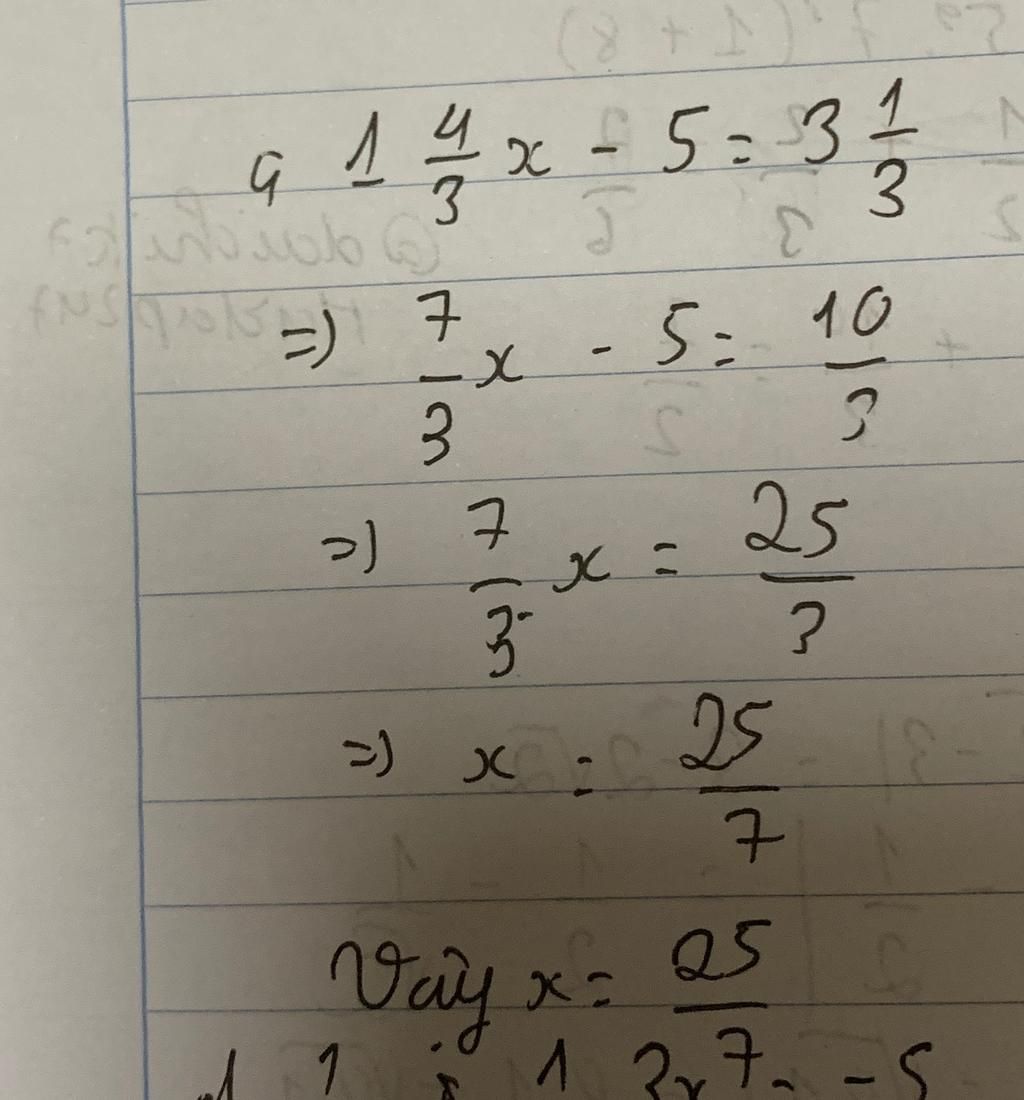 1 4/3 x - 5 = 3 1/3
=) 7/3 x - 5 = 10/3
=) 7/3 x = 25/3
=) x = 25/7
Vậy x = 25/7